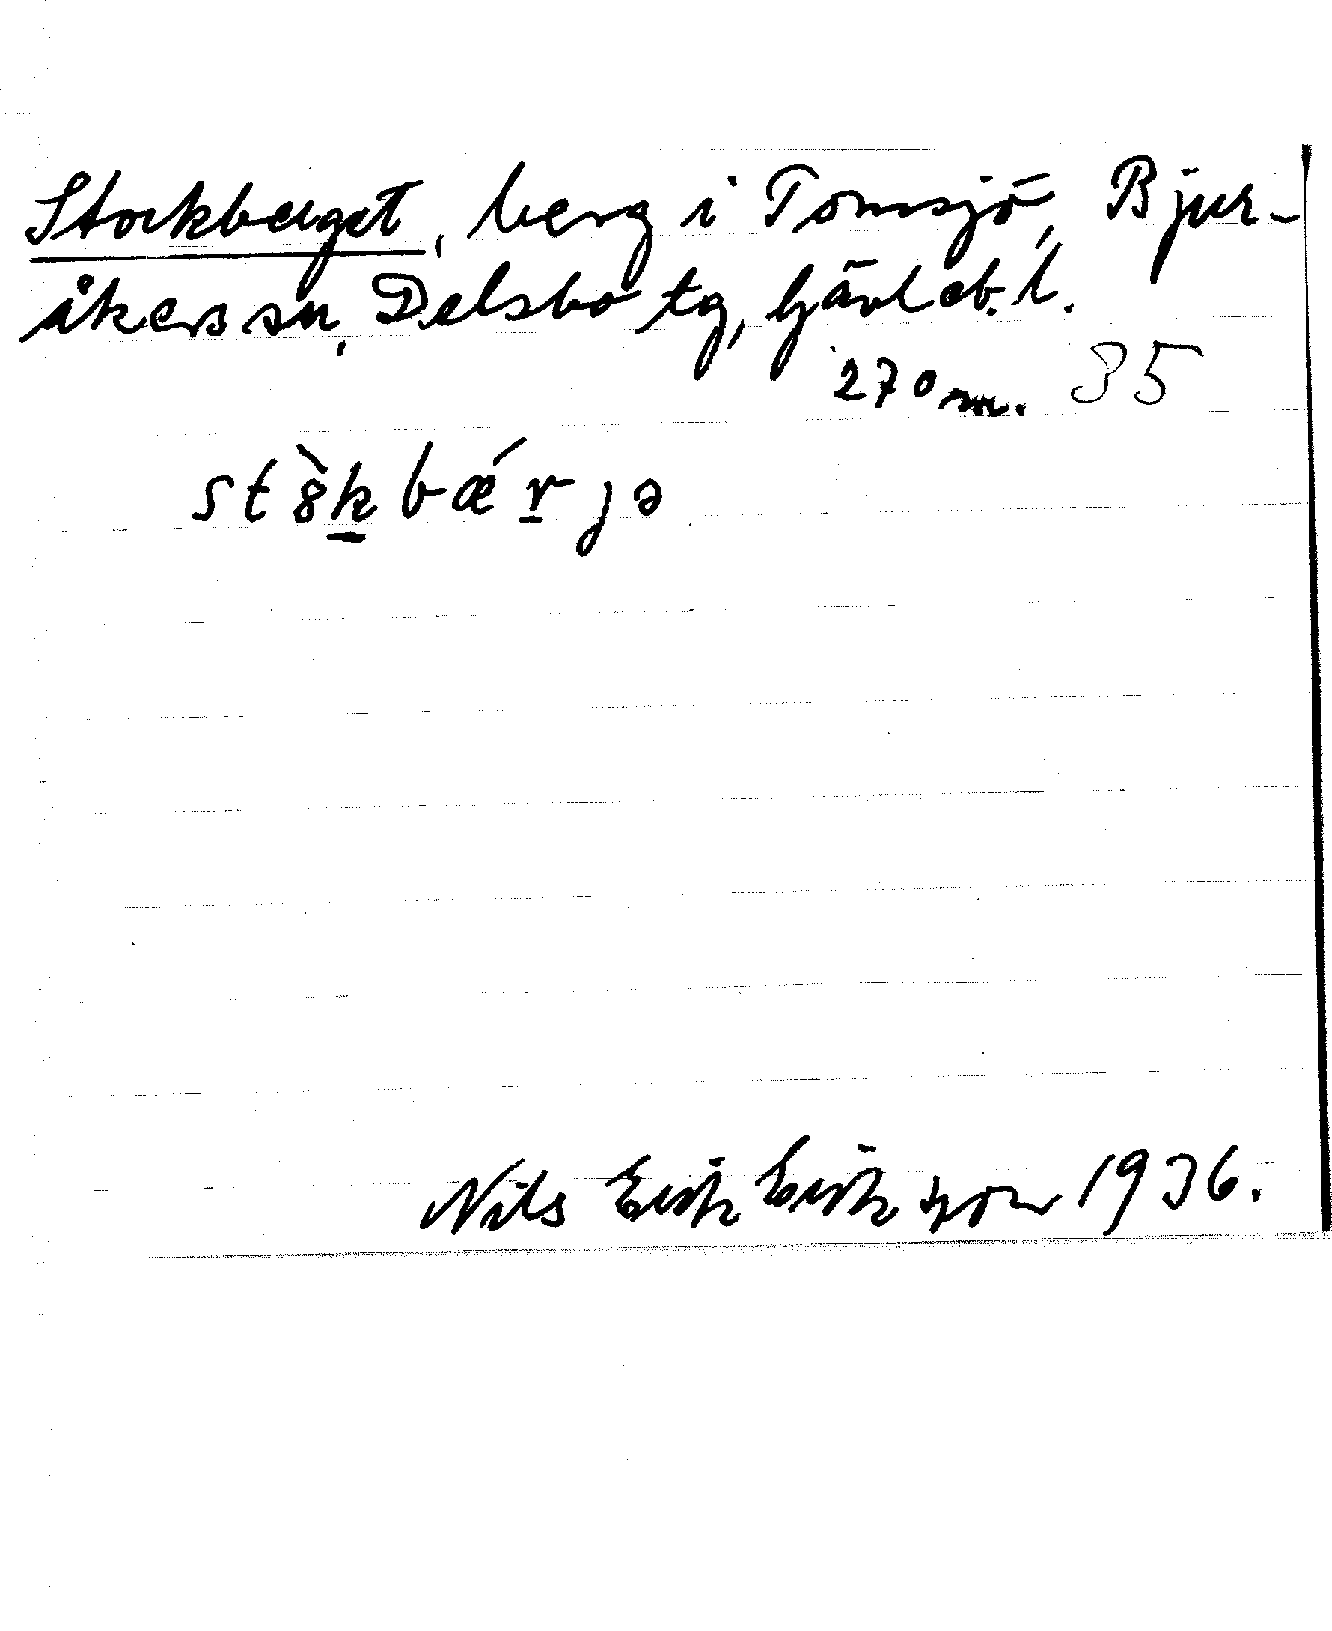 Stockberget, berg i Tomsjö, Bjur-
åkers sn, Delsbo tg, Gävleb. l.
270 m. 35
stò̀8k̠bǽr̠jə
Nils Erik Eriksson 1936.